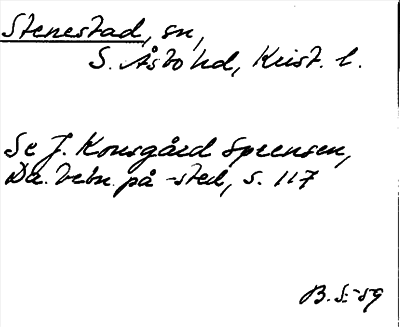 Stenestad, sn,
S. Åsbo hd, Krist. l.
Se J. Kousgård Sørensen,
Da. bebn. på -sted, s. 117
B. S-59